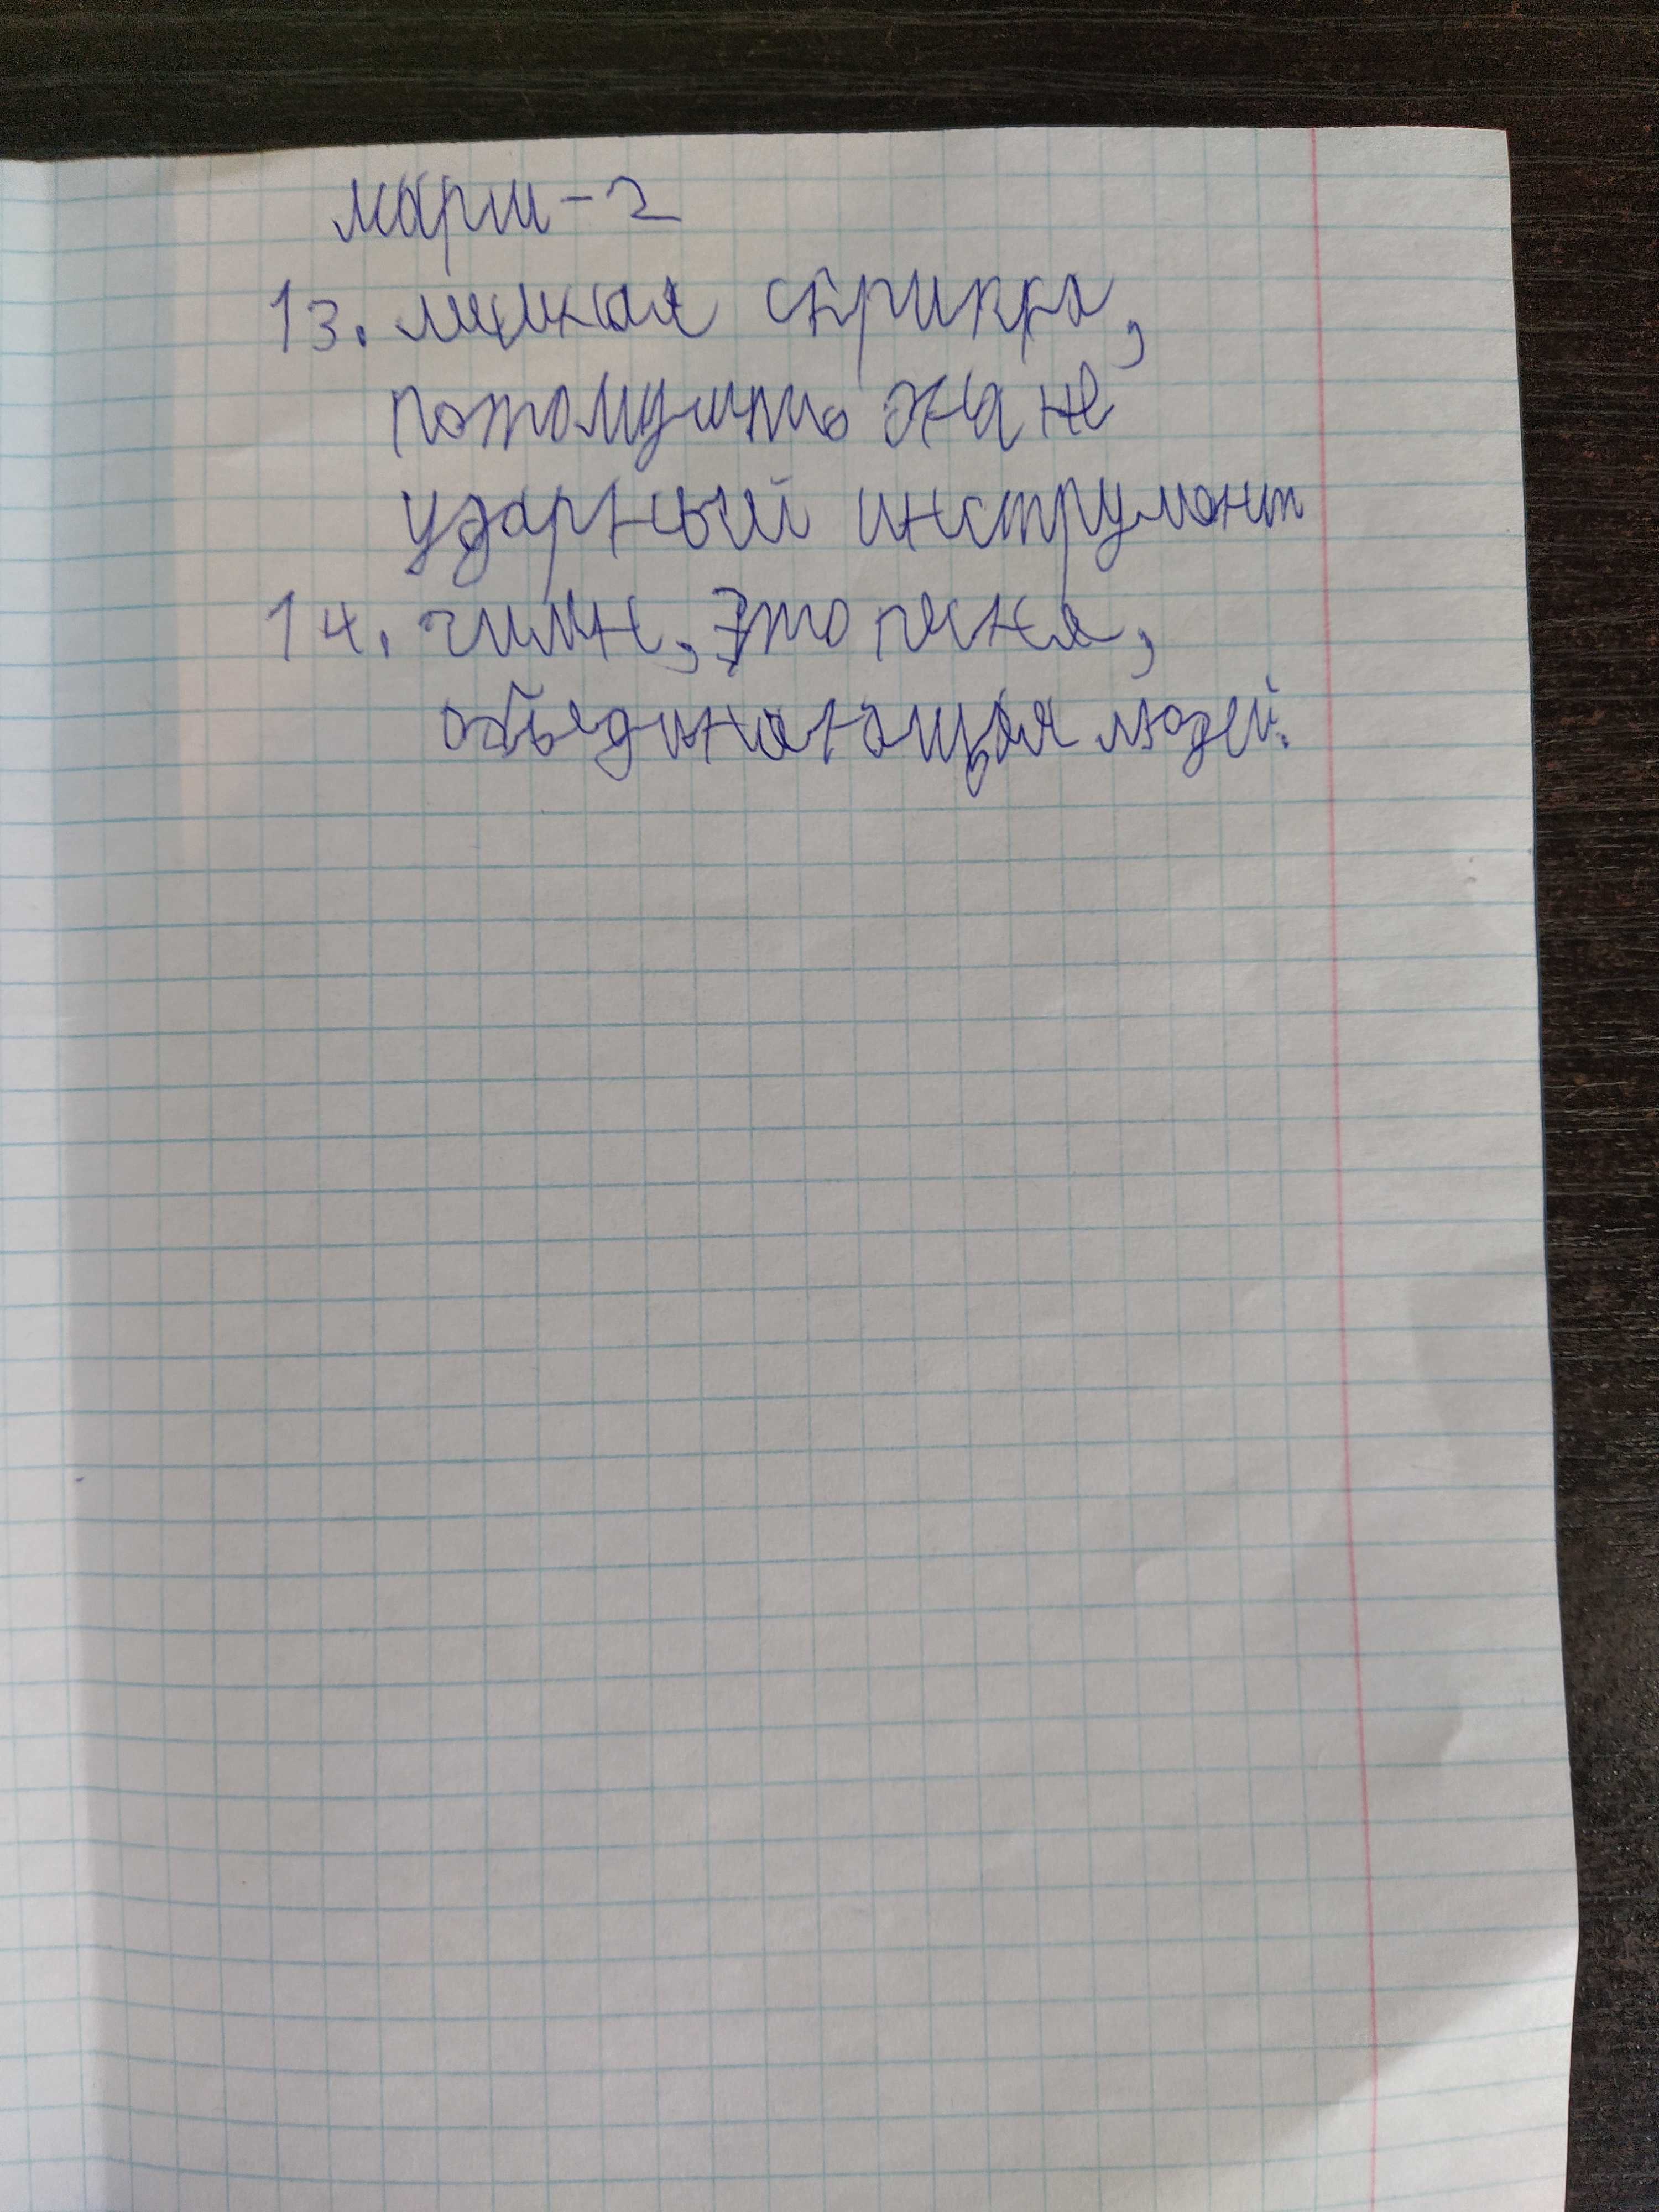 марш-2
13. лишная скрипка,
потомучто она не
ударный инструмент
14. гимн, это песня,
объединяющая людей.